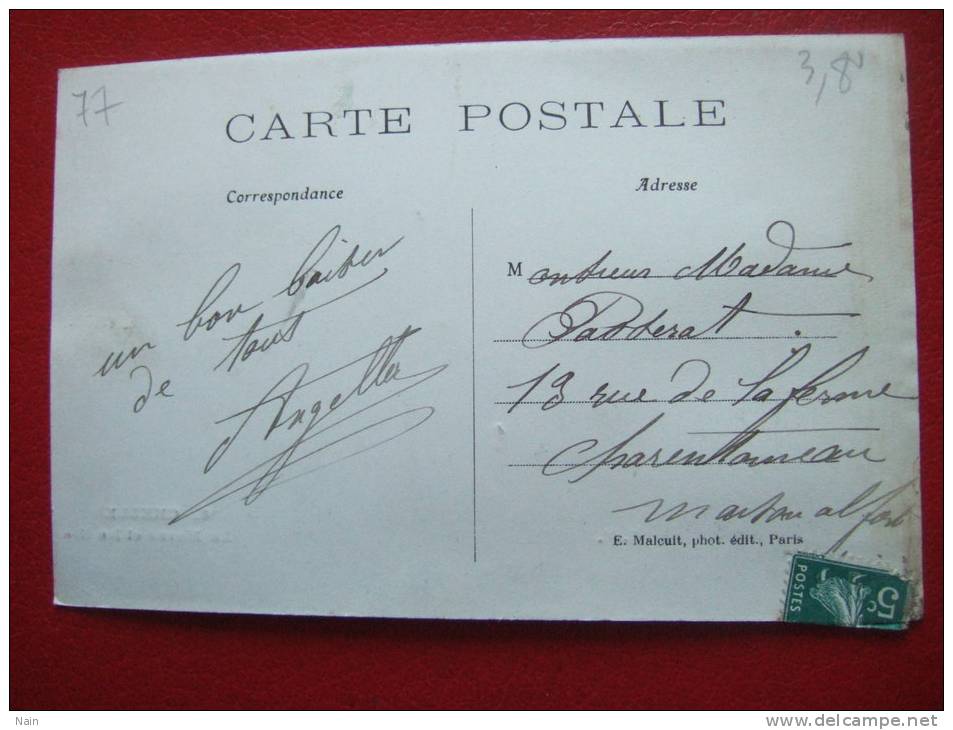 77
3,8
CARTE POSTALE
Correspondance
Adresse
un bon baiser
de tous
Angella
Monsieur Madame
Passerat.
13 rue de la ferme
Charentonneau
maison alfort
E. Malcuit, phot. édit., Paris
POSTES
5c
Nain
www.delcampe.net